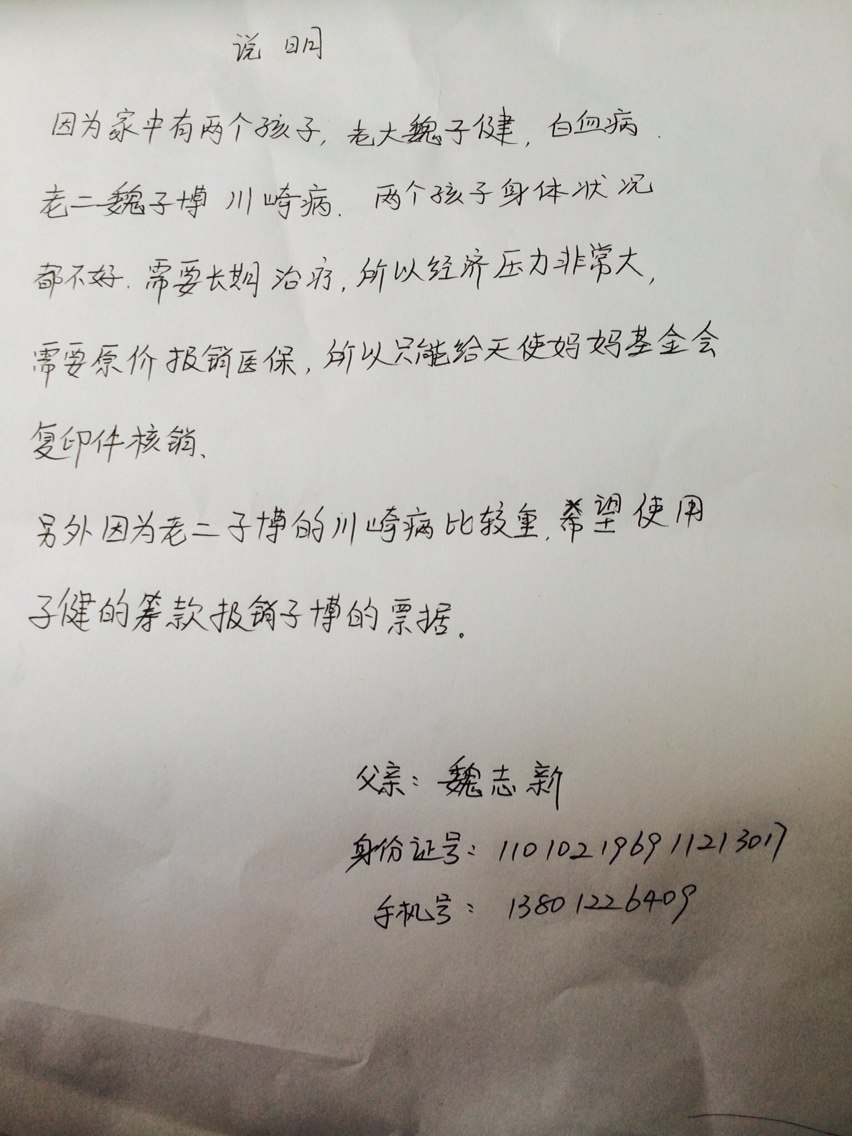 说明
因为家中有两个孩子,老大魏子健,白血病.
老二魏子博 川崎病. 两个孩子身体状况
都不好.需要长期治疗,所以经济压力非常大,
需要原价报销医保,所以只能给天使妈妈基金会
复印件核销、
另外因为老二子博的川崎病比较重.希望使用
子健的筹款报销子博的票据。
父亲:魏志新
身份证号:110102196911213017
手机号:13801226409